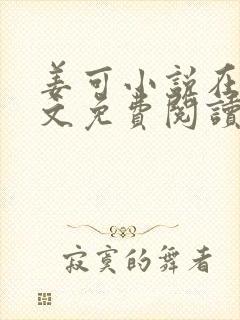 姜可小说在
文免費閱讀
寂寞的舞者